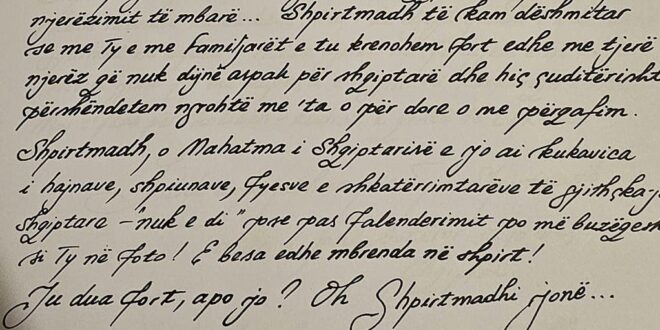 njerëzimit të mbarë... Shpirtmadh të kam dëshmitar
se me Ty e me familjarët e tu krenohem fort edhe me tjerë
njerëz që nuk dijnë aspak për shqiptarë dhe hiç çuditërisht
përshëndetem ngrohtë me 'ta o për dore o me përqafim.
Shpirtmadh, o Mahatma i Shqiptarisë e jo ai kukavica
i hajnave, shpiunave, fyesve e shkatërrimtarëve të gjithçka-j
shqiptara - "nuk e di" pse pas falenderimit po më buzëqesh
si Ty në foto! E besa edhe mbrenda në shpirt!
Ju dua fort, apo jo? Oh Shpirtmadhi jonë...